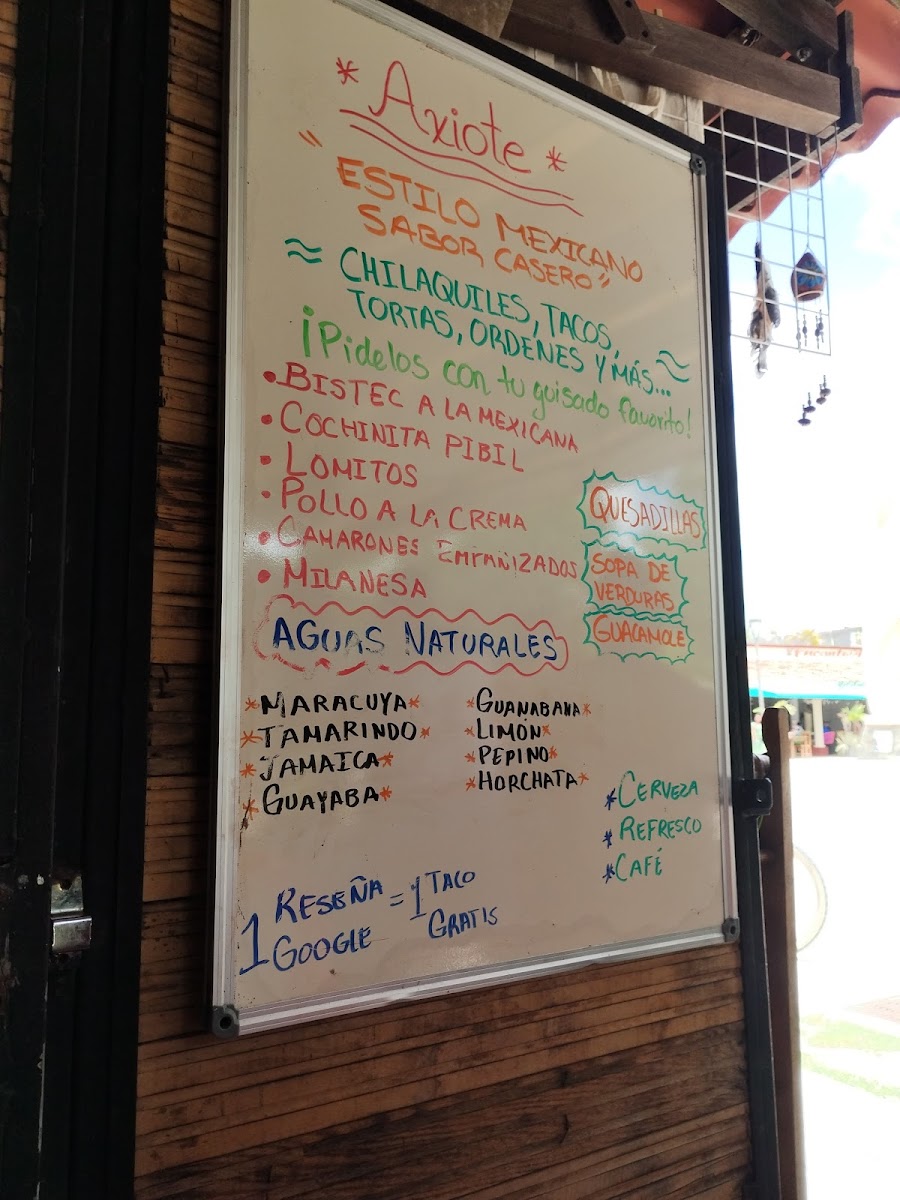 * Axiote *
"ESTILO MEXICANO
SABOR CASERO"
≈ CHILAQUILES, TACOS,
TORTAS, ORDENES Y MÁS... ≈
¡Pidelos con tu guisado favorito!
• BISTEC A LA MEXICANA
• COCHINITA PIBIL
• LOMITOS
• POLLO A LA CREMA
• CAMARONES EMPAÑIZADOS
• MILANESA
QUESADILLAS
SOPA DE
VERDURAS
GUACAMOLE
AGUAS NATURALES
*MARACUYA*
*TAMARINDO*
*JAMAICA*
*GUAYABA*
*GUANABANA*
*LIMÓN*
*PEPINO*
*HORCHATA*
*CERVEZA
*REFRESCO
*CAFÉ
1 RESEÑA = 1 TACO
GOOGLE GRATIS